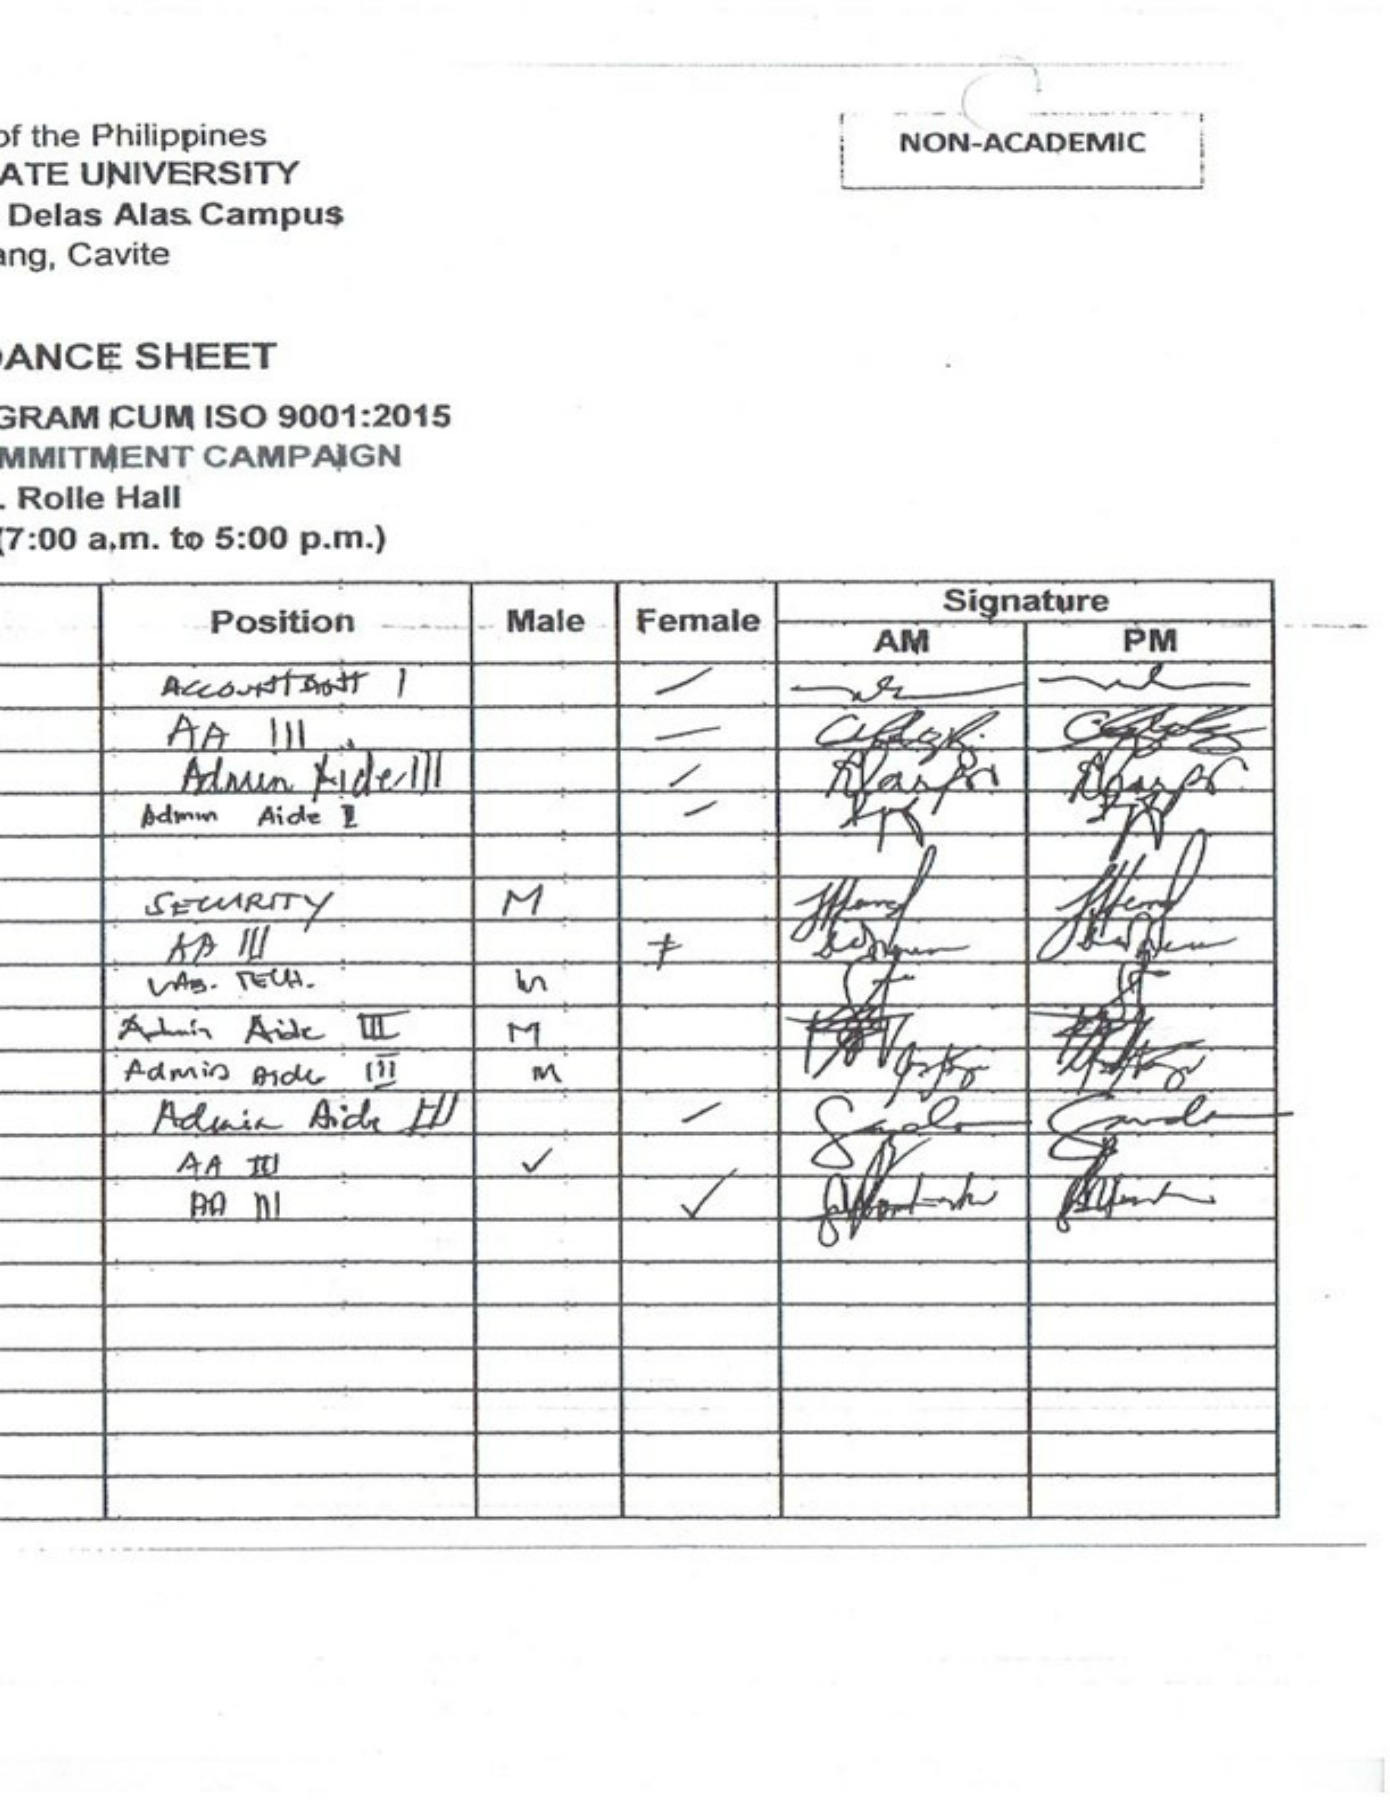 of the Philippines
NON-ACADEMIC
ATE UNIVERSITY
Delas Alas Campus
ang, Cavite
DANCE SHEET
GRAM CUM ISO 9001:2015
MMITMENT CAMPAIGN
. Rolle Hall
(7:00 a.m. to 5:00 p.m.)
Position Male Female Signature
AM PM
ACCOUNTANT I
AA III
Admin Aide III
Admin Aide I
SECURITY M
AA III F
LAB. TECH. M
Admin Aide III M
Admin Aide III M
Admin Aide III
AA III ✓
AA III ✓